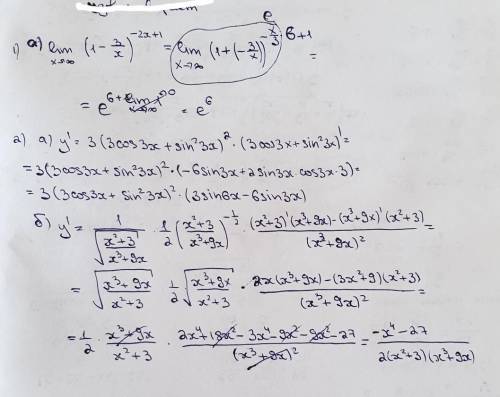 1) a) lim x→∞ (1 - 3/x)^(-2x+1) = lim x→∞ (1 + (-3/x))^(-x/3 · 6+1) e =
= e^(6+lim x→∞ 0) = e^6
2) a) y' = 3(3cos3x + sin²3x)² · (3cos3x + sin²3x)' =
= 3(3cos3x + sin²3x)² · (-6sin3x + 2sin3x · cos3x · 3) =
= 3(3cos3x + sin²3x)² · (3sin6x - 6sin3x)
б) y' = 1/√((x²+3)/(x³+9x)) · 1/2 ((x²+3)/(x³+9x))^(-1/2) · ((x²+3)'(x³+9x) - (x³+9x)'(x²+3))/(x³+9x)² =
= √((x³+9x)/(x²+3)) · 1/2 √((x³+9x)/(x²+3)) · (2x(x³+9x) - (3x²+9)(x²+3))/(x³+9x)² =
= 1/2 · (x³+9x)/(x²+3) · (2x⁴+18x²-3x⁴-9x²-9x²-27)/(x³+9x)² = (-x⁴-27)/(2(x²+3)(x³+9x))